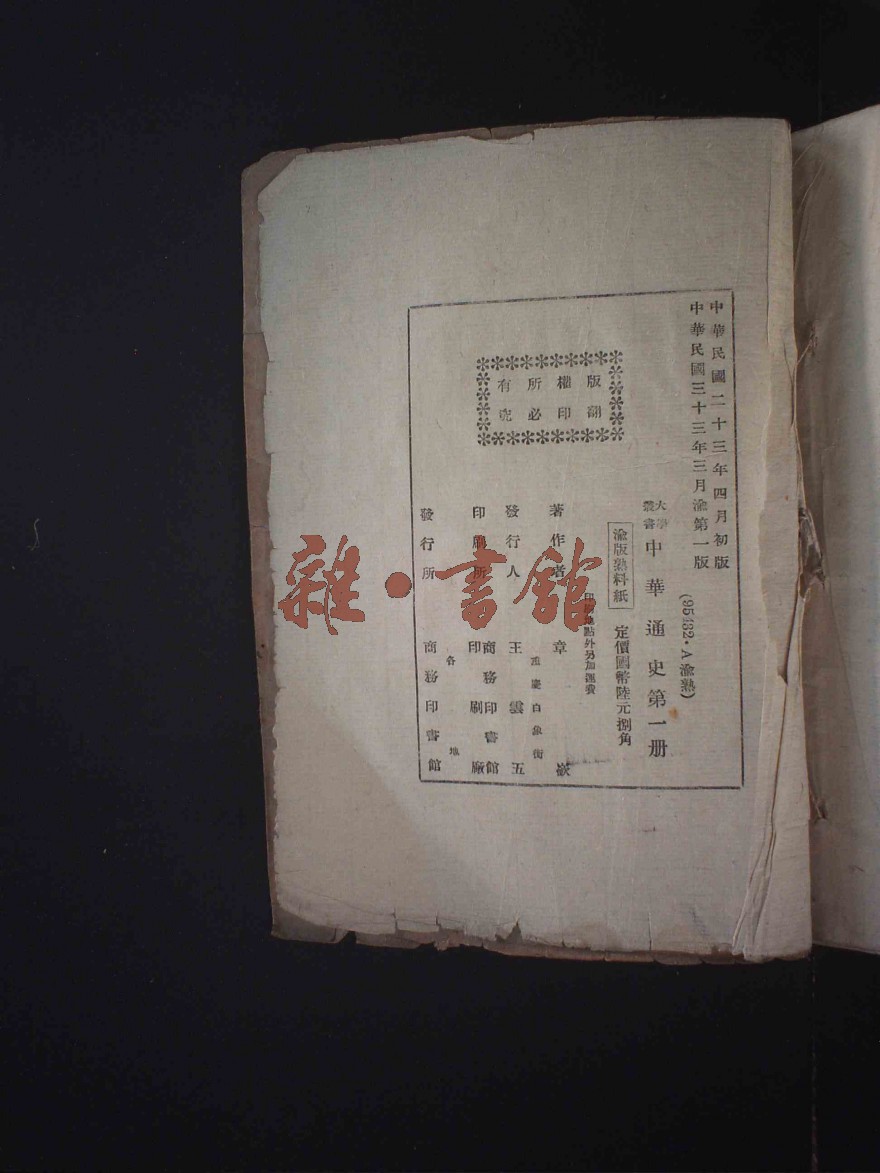 中華民國二十三年四月初版
中華民國三十三年三月渝第一版
(95432·A渝熟)
大學
叢書
中華通史第一册
渝版熟料紙
定價國幣陸元捌角
印刷地點外另加運費
著作者 章嶔
重慶白象街
發行人 王雲五
印刷所 商務印書館
印刷廠
各地
發行所 商務印書館
版權所有
翻印必究
雜·書館